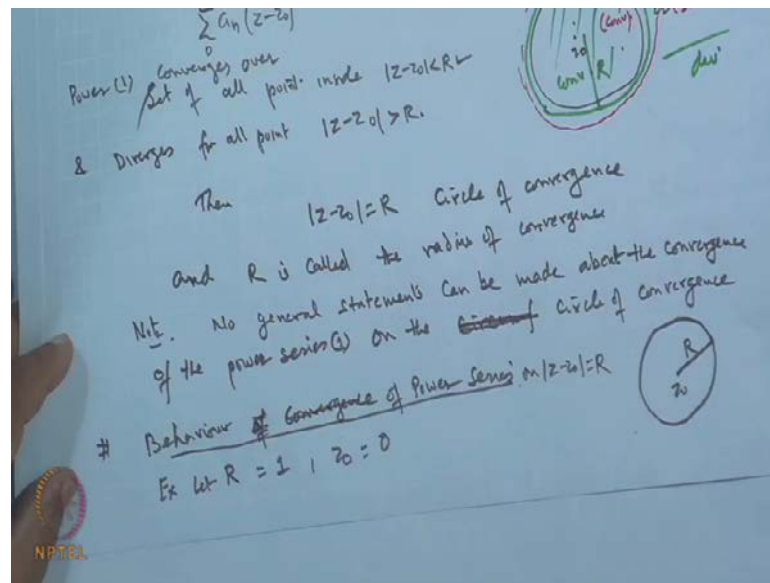 ∑ an (z-z0)
0
Power (1) converges over
Set of all point. inside |z-z0|<R
& Diverges for all point |z-z0| > R.
Then |z-z0|=R Circle of convergence
and R is called the radius of convergence
Note. No general statements can be made about the convergence
of the power series (1) on the circle of convergence
# Behaviour of Convergence of Power Series on |z-z0|=R
Ex let R = 1 , z0 = 0
(conv)
z0
conv R
div
R
z0
NPTEL